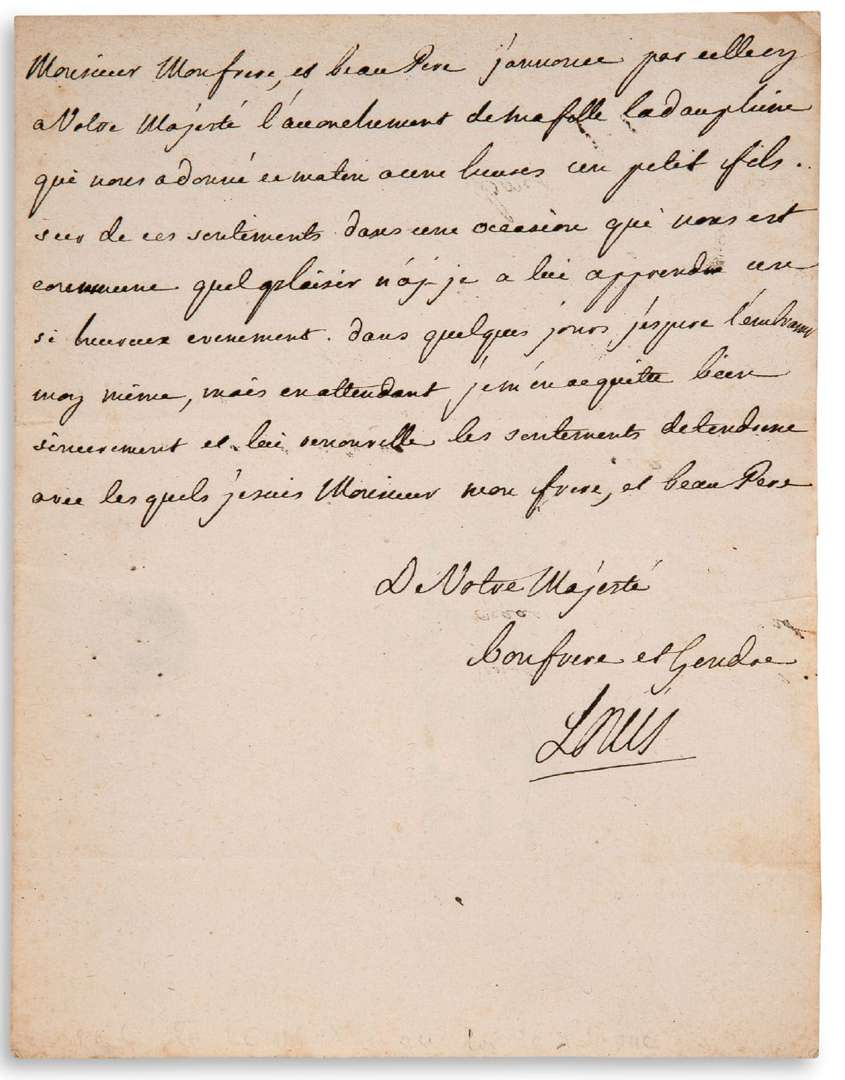 Monsieur Mon frere, et beau Pere j'annonce par celle cy
a Votre Majésté l'accouchement de ma fille la dauphine
qui nous a donné ce matin a une heures un petit fils.
seur de ces sentiments dans une occasion qui nous est
commune quel plaisir n'aj-je a lui apprendre un
si heureux evenement. dans quelques jours j'espere l'embrasser
moy même, mais en attendant je m'en acquitte bien
sincerement et lui renouvelle les sentiments de tendresse
avec les quels je suis Monsieur mon frere, et beau Pere
De Votre Majésté
bon frere et Gendre
Louis